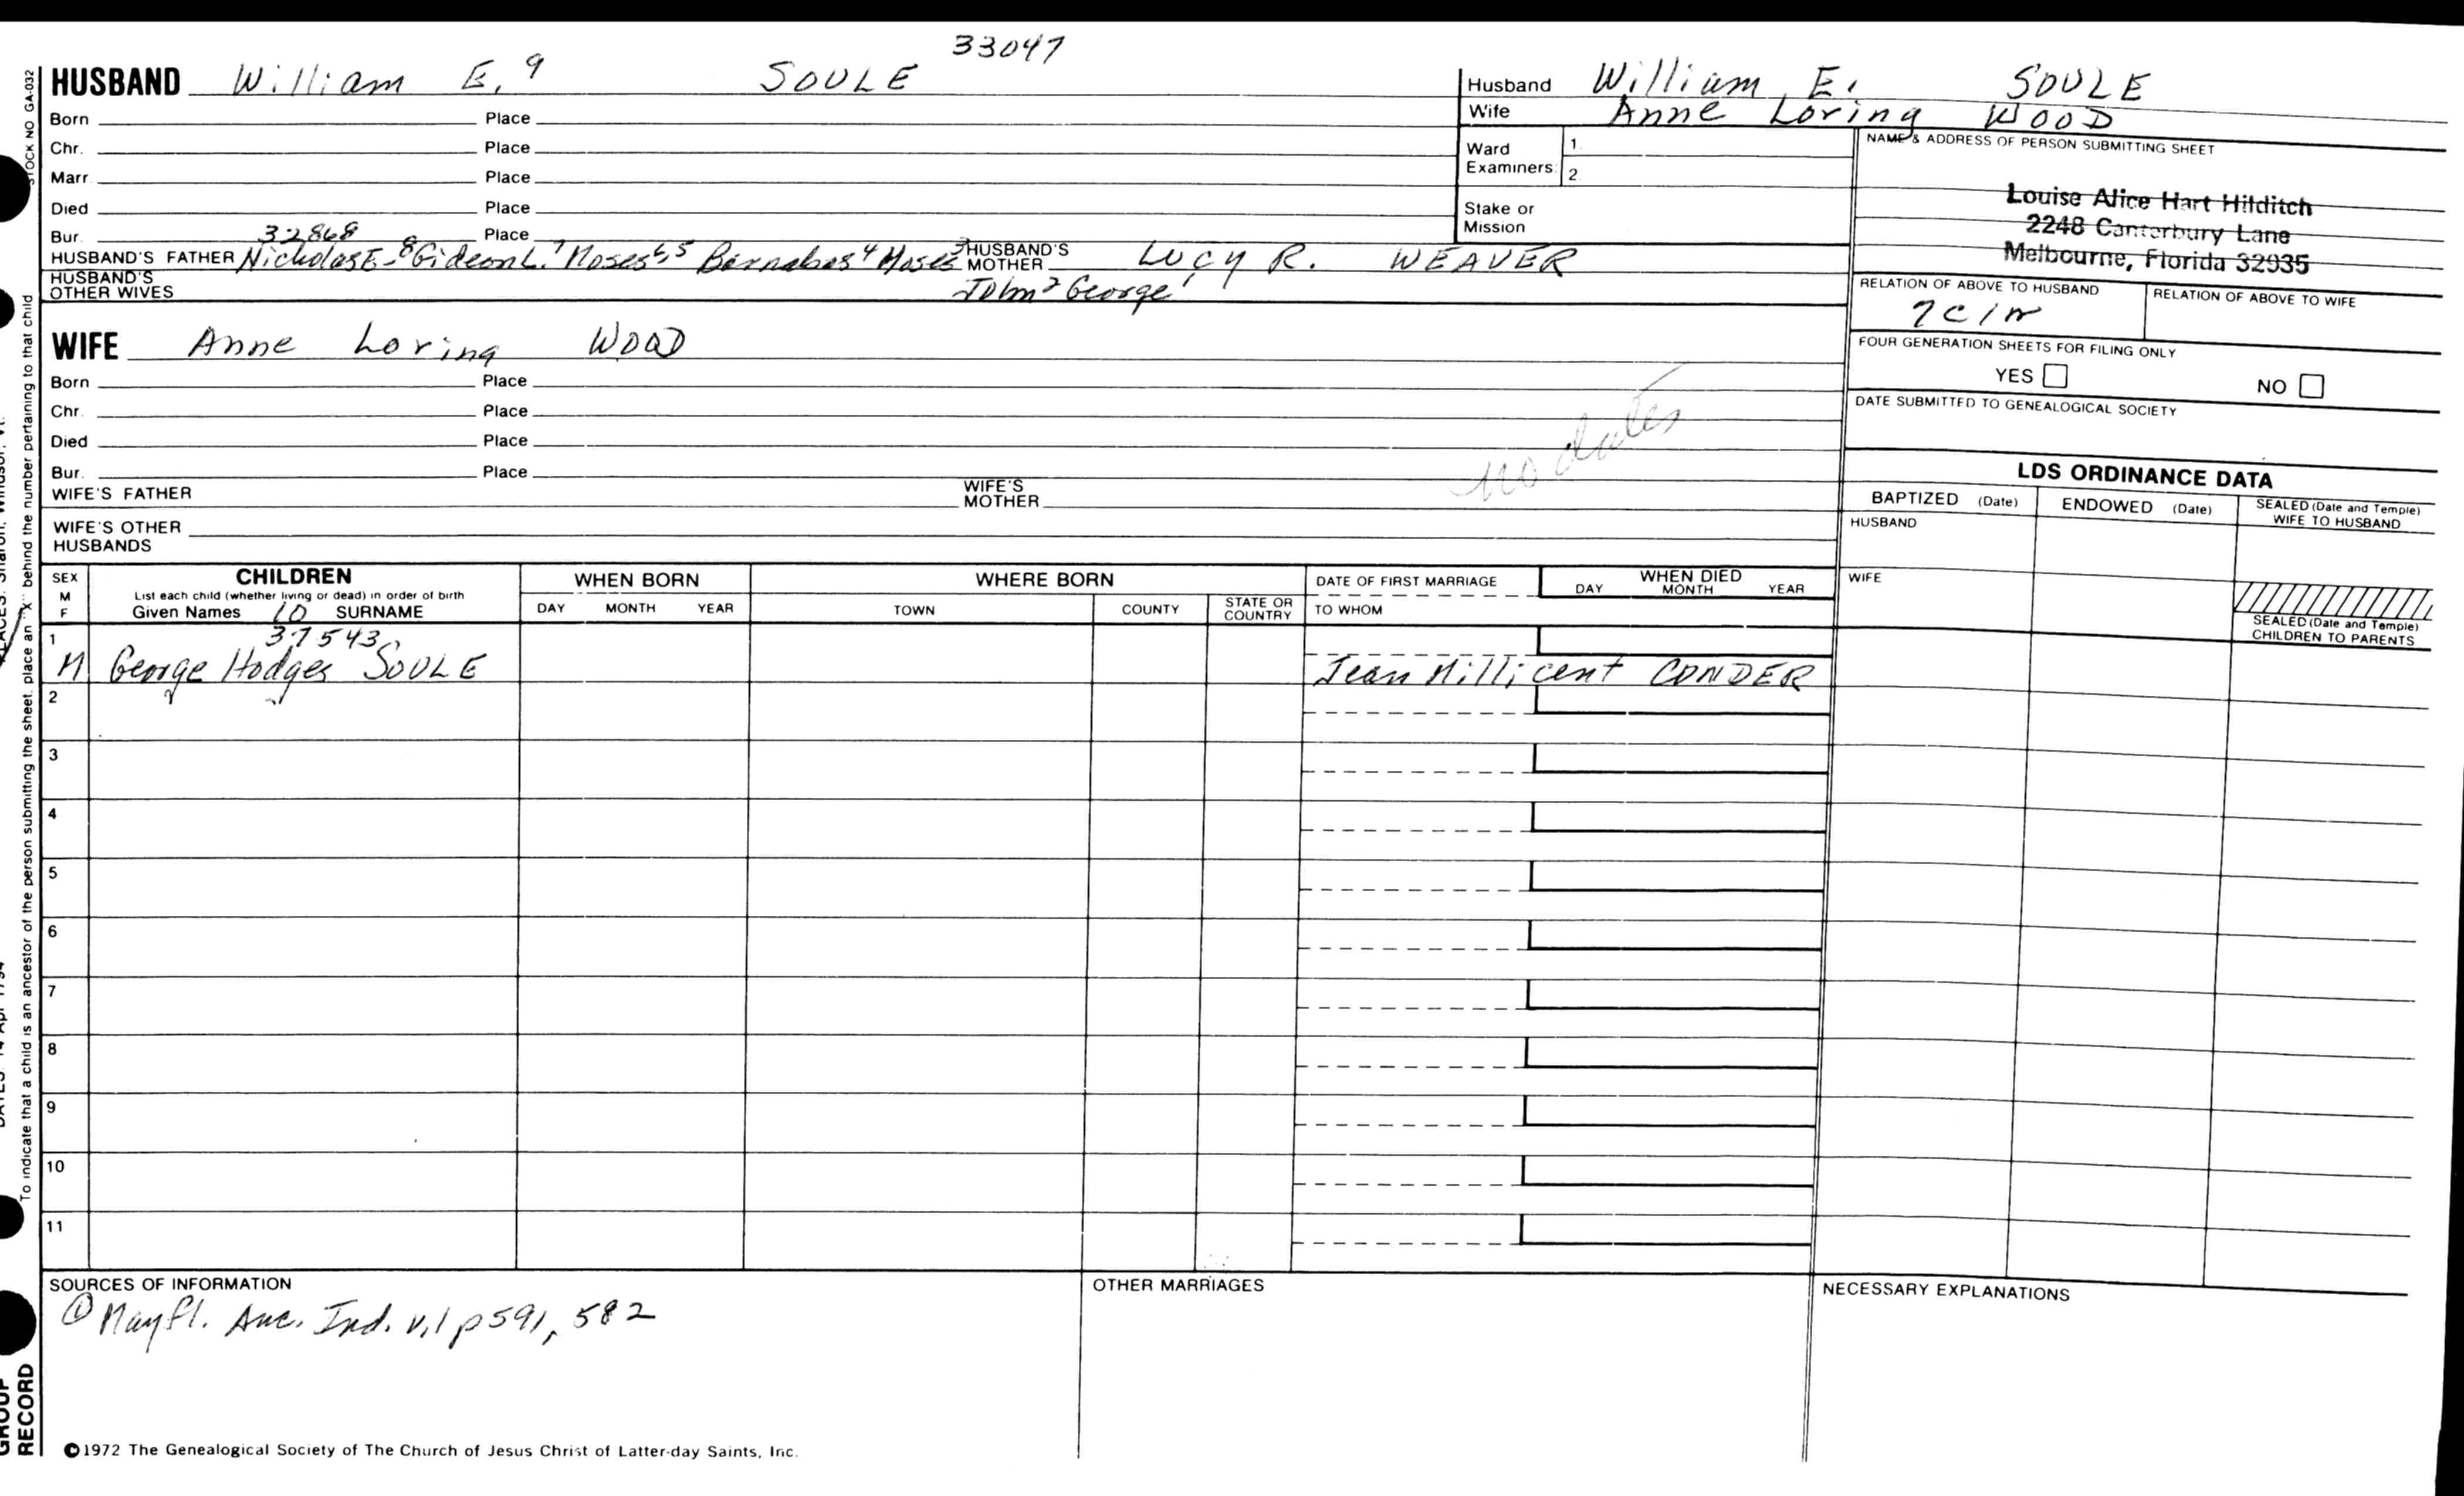 33047
HUSBAND William E.⁹ SOULE
Born Place
Chr. Place
Marr. Place
Died Place
Bur. 32868 Place
HUSBAND'S FATHER Nicholas E.⁸ Gideon L.⁷ Moses⁶,⁵ Barnabas⁴ Moses³ HUSBAND'S MOTHER LUCY R. WEAVER
HUSBAND'S OTHER WIVES John² George¹
WIFE Anne Loring WOOD
Born Place
Chr. Place
Died Place
Bur. Place
WIFE'S FATHER WIFE'S MOTHER
WIFE'S OTHER HUSBANDS
no dates
Husband William E. SOULE
Wife Anne Loring WOOD
Ward Examiners: 1.
2.
Stake or Mission
NAME & ADDRESS OF PERSON SUBMITTING SHEET
Louise Alice Hart Hilditch
2248 Canterbury Lane
Melbourne, Florida 32935
RELATION OF ABOVE TO HUSBAND RELATION OF ABOVE TO WIFE
7C1r
FOUR GENERATION SHEETS FOR FILING ONLY
YES NO
DATE SUBMITTED TO GENEALOGICAL SOCIETY
LDS ORDINANCE DATA
BAPTIZED (Date) ENDOWED (Date) SEALED (Date and Temple) WIFE TO HUSBAND
HUSBAND
WIFE
SEALED (Date and Temple) CHILDREN TO PARENTS
SEX M F CHILDREN WHEN BORN WHERE BORN DATE OF FIRST MARRIAGE WHEN DIED
List each child (whether living or dead) in order of birth
Given Names 10 SURNAME DAY MONTH YEAR TOWN COUNTY STATE OR COUNTRY TO WHOM DAY MONTH YEAR
1 37543
M George Hodges SOULE Jean Millicent CONDER
2
3
4
5
6
7
8
9
10
11
SOURCES OF INFORMATION OTHER MARRIAGES NECESSARY EXPLANATIONS
① Mayfl. Anc. Ind. v.1 p591, 582
©1972 The Genealogical Society of The Church of Jesus Christ of Latter-day Saints, Inc.
STOCK NO GA-032
To indicate that a child is an ancestor of the person submitting the sheet, place an "X" behind the number pertaining to that child
GROUP
RECORD